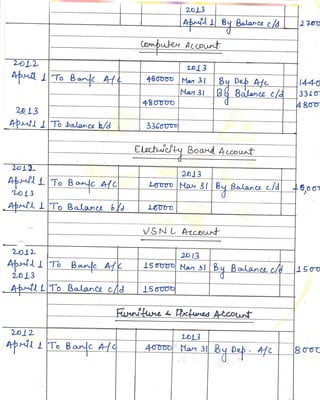 2013
April 1 By Balance c/d 2700
Computer Account
2012 2013
April 1 To Bank A/c 480000 Mar 31 By Dep A/c 1440
Mar 31 By Balance c/d 3360
480000 4800
2013
April 1 To balance b/d 3360000
Electricity Board Account
2012 2013
April 1 To Bank A/C 10000 Mar 31 By Balance c/d 10,00
2013
April 1 To Balance b/d 10000
VSNL Account
2012 2013
April 1 To Bank A/c 150000 Mar 31 By Balance c/d 1500
2013
April 1 To Balance c/d 150000
Furniture & Fixtures Account
2012 2013
April 1 To Bank A/c 40000 Mar 31 By Dep. A/c 8000